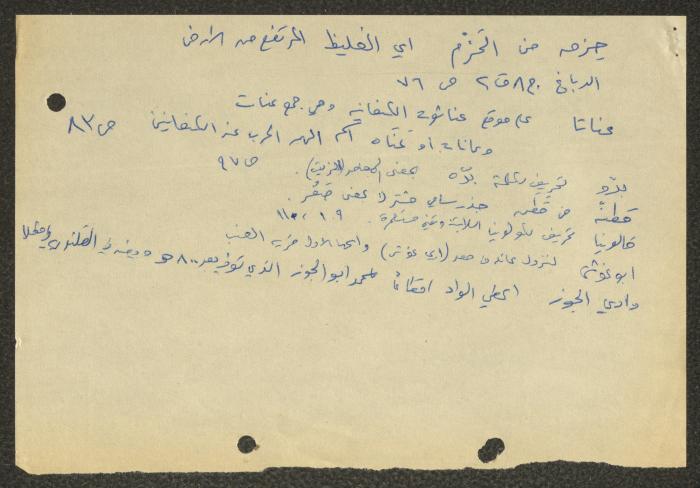 حزمه من الحَزْم اي الغليظ المرتفع من الارض
الدباغ ج٨ ق٢ ص ٧٦
عناتا على موقع عناثوت الكنعانيه وهي جمع عنات
وعانات او عناه اسم اله الحرب عند الكنعانيين ص ٨٣
بدّو تحريف بدّه بمعنى المعصر (الزيت). ص ٩٧
قطنّه من قطن جذر سامي مشترك بمعنى صَغُر.
قالونيا تحريف كولونيا اللاتينية وتعني مستعمرة. ١٠٩، ١١٠
ابو غوش لنزول عائلة (ابي غوش) واسمها الاول قرية العنب
وادي الجوز اعطي الواد اقطاعاً لمحمد ابو الجوز الذي توفي بعد ٨٠٠ هـ